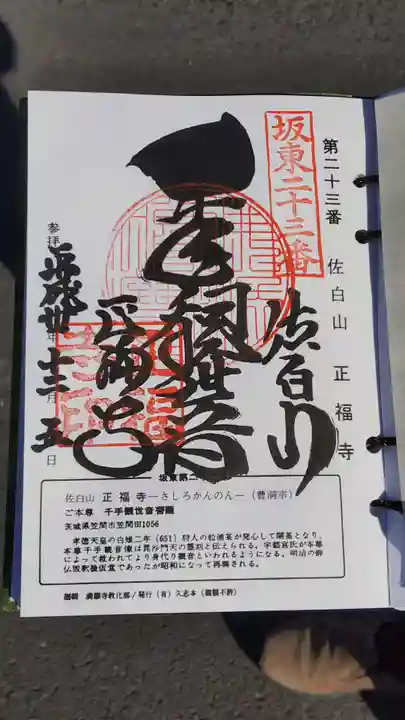 第二十三番 佐白山 正福寺
坂東二十三番
佐白山
千手観世音
正福寺
参拝 平成卅年十二月五日
坂東第二
佐白山 正福寺―さしろかんのん―(曹洞宗)
ご本尊 千手観世音菩薩
茨城県笠間市笠間田1056
孝徳天皇の白雉二年(651)狩人の粒浦某が発心して開基となり、
本尊千手観音像は毘沙門天の墨刻と伝えられる。宇都宮氏が本尊
によって救われてより身代り観音といわれるようになる。明治の排
仏毀釈後仮堂であったが昭和になって再興される。
満願寺教化部/発行(有)久志本(複製不許)